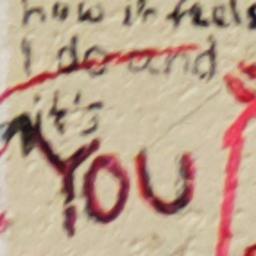 how it feels
I do and
it's
YOU